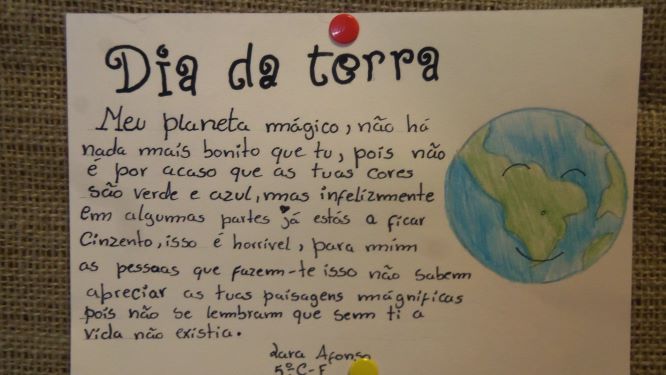 Dia da terra
Meu planeta mágico, não há
nada mais bonito que tu, pois não
é por acaso que as tuas cores
são verde e azul, mas infelizmente
em algumas partes já estás a ficar
cinzento, isso é horrível, para mim
as pessoas que fazem-te isso não sabem
apreciar as tuas paisagens mágnificas
pois não se lembram que sem ti a
vida não existia.
Iara Afonso
5ºC-F